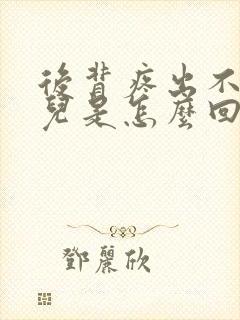 後背疼出不
兒是怎麼回
鄧麗欣